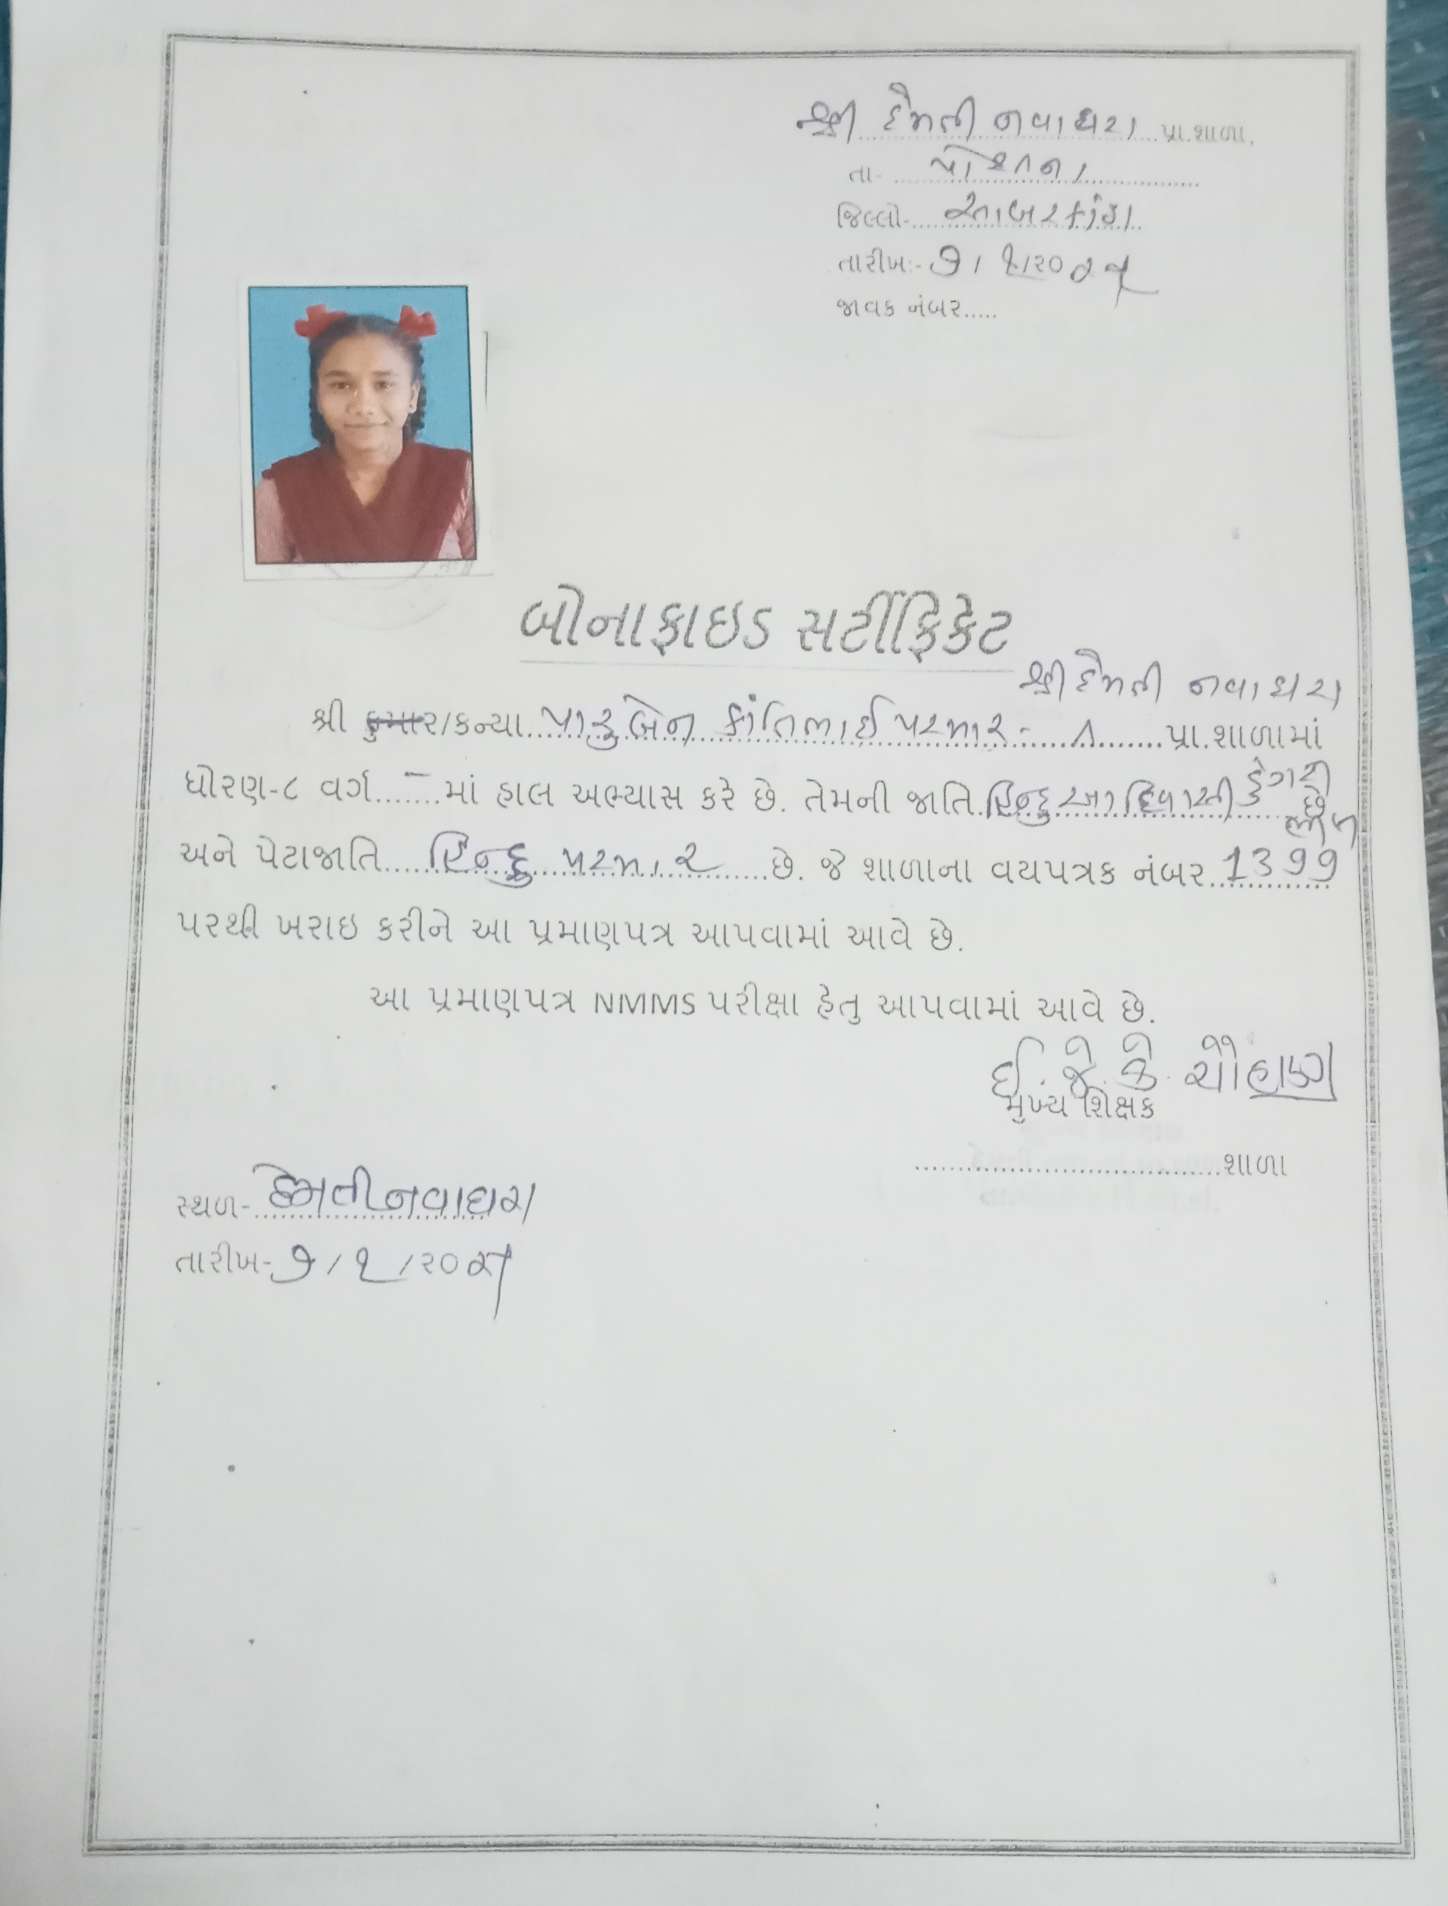 શ્રી હેમતી નવાઘરા પ્રા.શાળા,
તા- પોશીના
જિલ્લો- સાબરકાંઠા
તારીખ:- ૭/૧/૨૦૨૫
જાવક નંબર.....
બોનાફાઇડ સર્ટીફિકેટ
શ્રી હેમતી નવાઘરા
શ્રી કુમાર/કન્યા પારુબેન કાંતિભાઈ પરમાર - પ્રા.શાળામાં
ધોરણ-૮ વર્ગ - માં હાલ અભ્યાસ કરે છે. તેમની જાતિ હિન્દુ આદિવાસી ડુંગરી છે
અને પેટાજાતિ હિન્દુ પરમાર છે. જે શાળાના વયપત્રક નંબર 1399
પરથી ખરાઇ કરીને આ પ્રમાણપત્ર આપવામાં આવે છે.
આ પ્રમાણપત્ર NMMS પરીક્ષા હેતુ આપવામાં આવે છે.
ઈ. જે. કે. ચૌહાણ
મુખ્ય શિક્ષક
શાળા
સ્થળ- હેમતી નવાઘરા
તારીખ- ૭/૧/૨૦૨૫